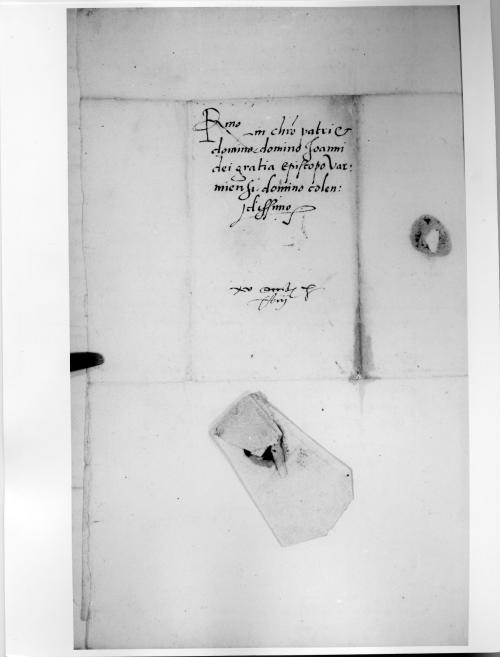 Rmo in chro patri et
domino domino Joanni
dei gratia Episcopo Var:
miensi. domino colen:
dissimo
xv